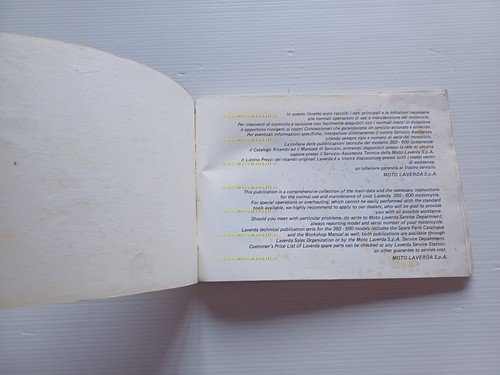 In questo libretto sono raccolti i dati principali e le istruzioni necessarie
alle normali operazioni di uso e manutenzione del motociclo.
www.motomanuali.it
Per interventi di controllo e revisione non facilmente eseguibili con i normali mezzi in dotazione
è opportuno rivolgersi ai nostri Concessionari che garantiscono un servizio accurato e sollecito.
Per eventuali informazioni specifiche, interpellate direttamente il nostro Servizio Assistenza
citando sempre tipo e numero di serie del motociclo.
www.motomanuali.it
La collana delle pubblicazioni tecniche dei modelli 350 - 500 comprende
il Catalogo Ricambi ed il Manuale di Servizio, entrambi disponibili presso la rete di vendita
oppure presso il Servizio Assistenza Tecnica della Moto Laverda S.p.A.
Il Listino Prezzi dei ricambi originali Laverda è a Vostra disposizione presso tutti i nostri centri
di assistenza:
un'ulteriore garanzia al Vostro servizio.
MOTO LAVERDA S.p.A.
www.motomanuali.it
This publication is a comprehensive collection of the main data and the necessary instructions
for the normal use and maintenance of your Laverda 350 - 500 models.
For special operations or overhauling, which cannot be easily performed with the standard
tools available, we highly recommend to apply to our dealers, who will be glad to provide
you with all possible assistance.
www.motomanuali.it
Should you meet with particular problems, do write to Moto Laverda Service Department,
always reporting model and serial number of your motorcycle.
Laverda technical publication serie for the 350 - 500 models includes the Spare Parts Catalogue
and the Workshop Manual as well; both publications are available through
Laverda Sales Organization or by the Moto Laverda S.p.A. Service Department.
www.motomanuali.it
Customer's Price List of Laverda spare parts can be checked at any Laverda Service Station:
an other guarantee to service cost.
www.motomanuali.it
MOTO LAVERDA S.p.A.